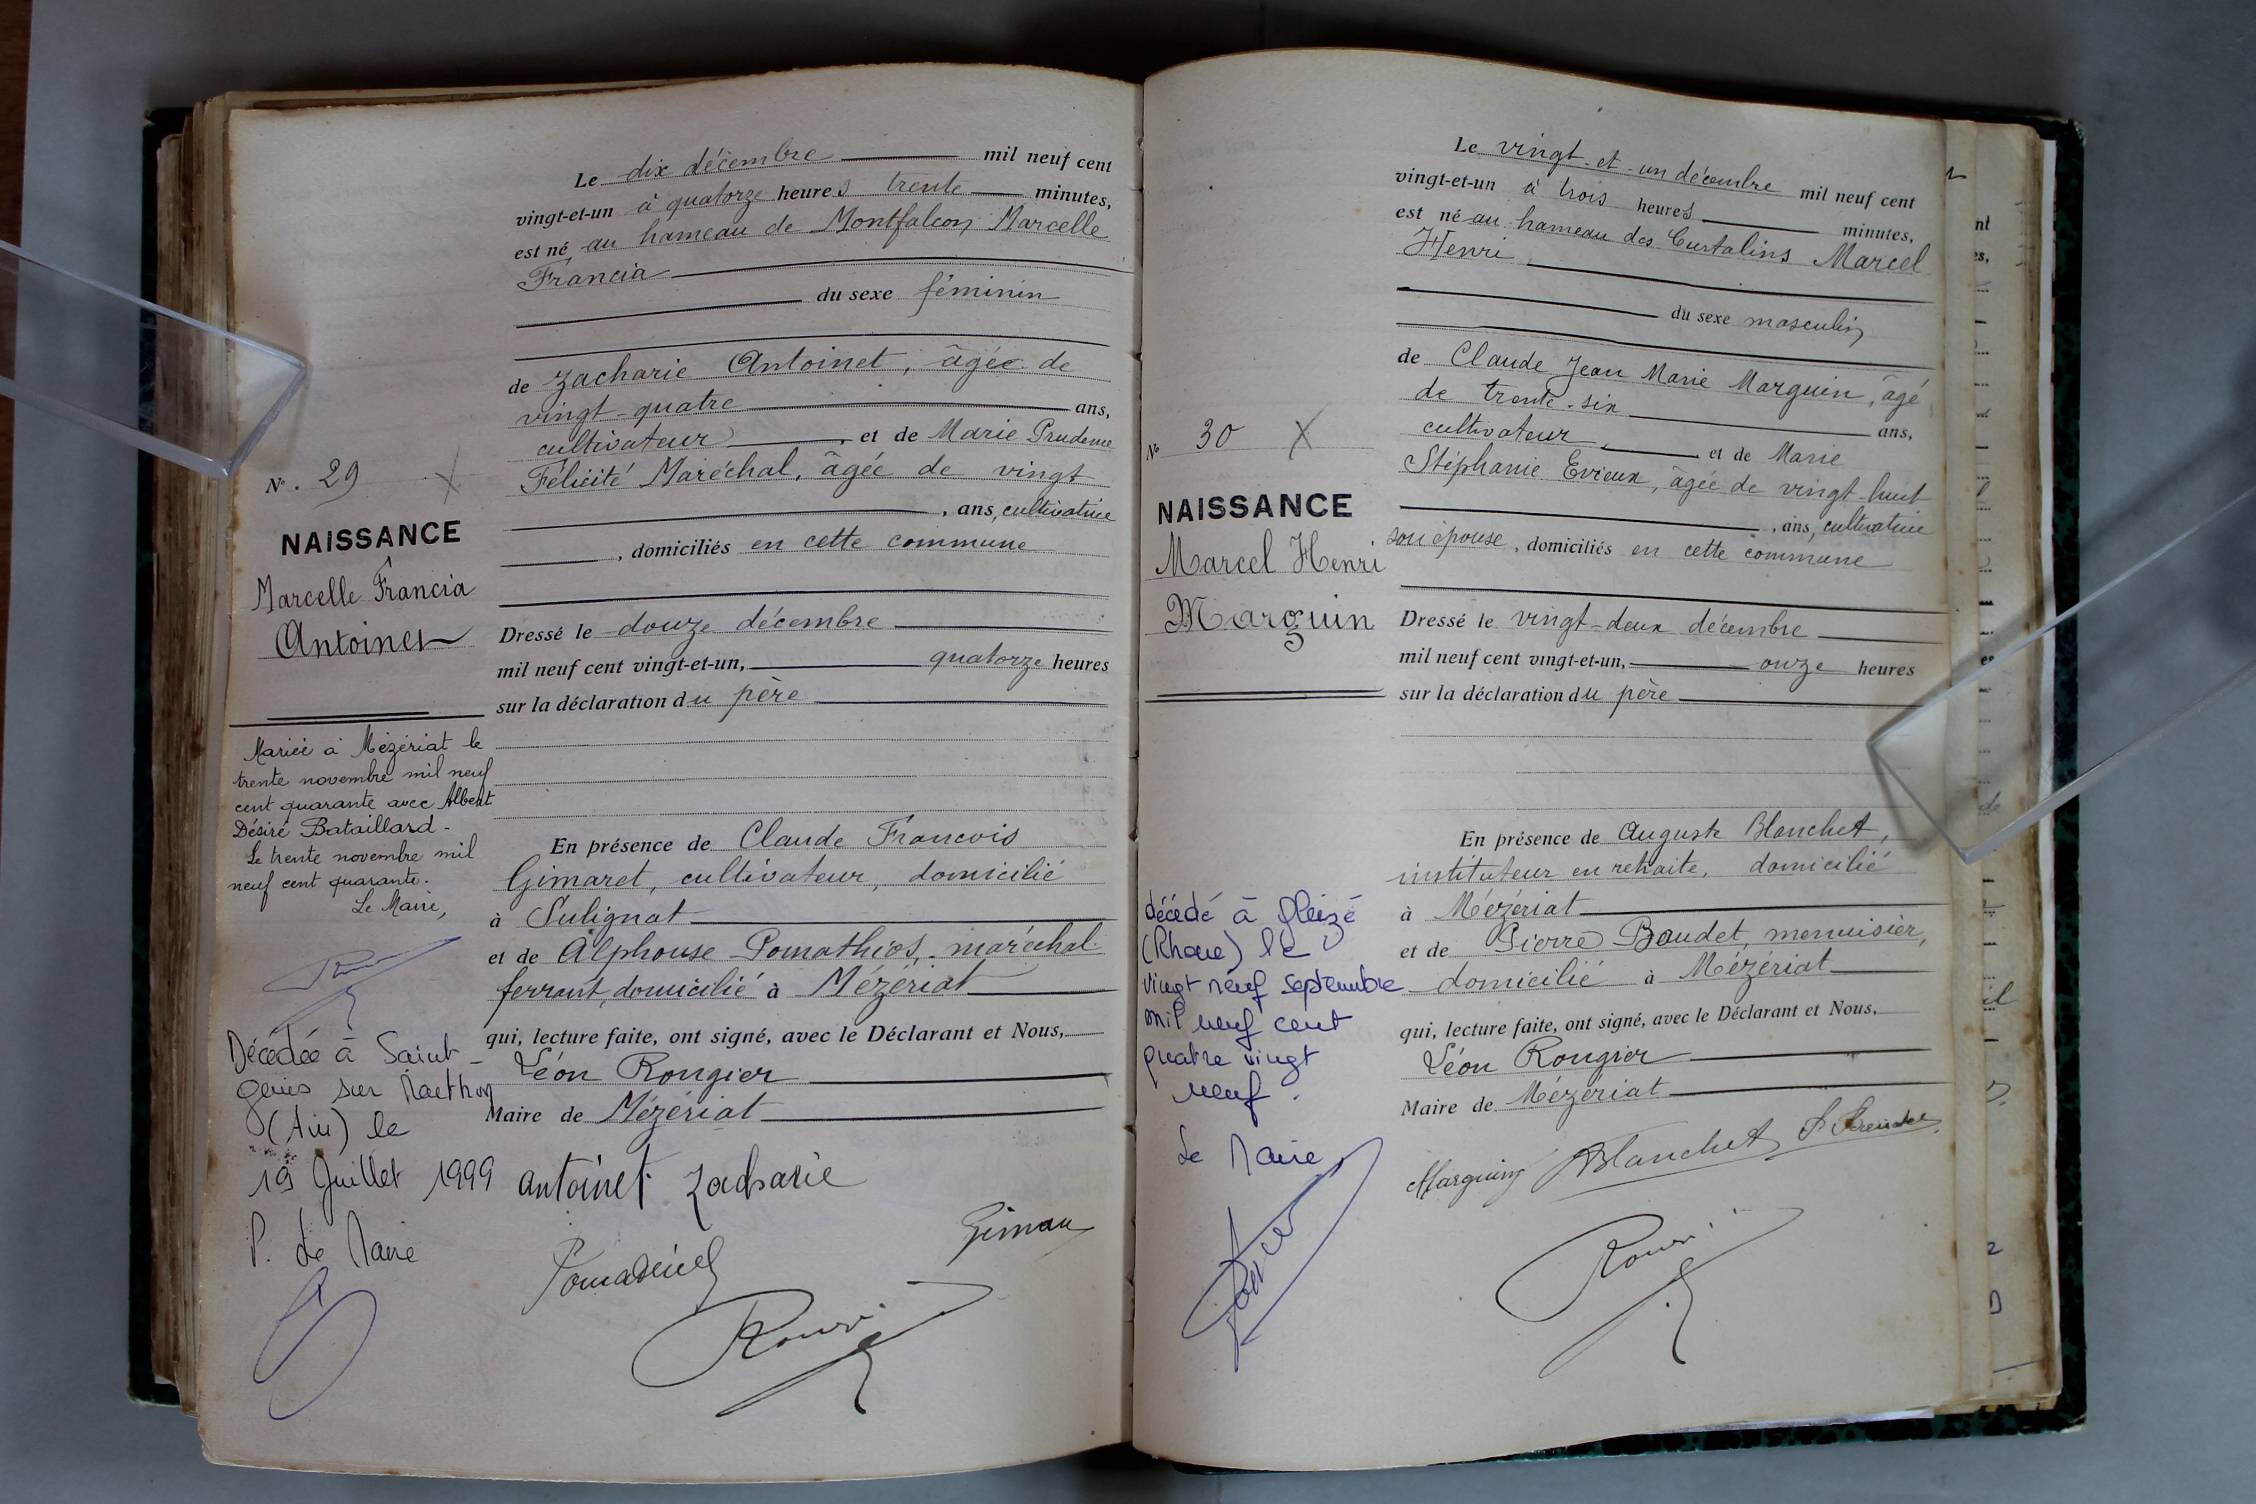 Le dix décembre mil neuf cent
vingt-et-un à quatorze heures trente minutes,
est né au hameau de Montfalcon Marcelle
Francia
du sexe féminin
de Zacharie Antoinet, âgée de
vingt-quatre ans,
cultivateur, et de Marie Prudence
Félicité Maréchal, âgée de vingt
, ans, cultivatrice
, domiciliés en cette commune
Dressé le douze décembre
mil neuf cent vingt-et-un, quatorze heures
sur la déclaration du père
En présence de Claude François
Gimaret, cultivateur, domicilié
à Sulignat
et de Alphonse Pomathios, maréchal-
ferrant, domicilié à Mézériat
qui, lecture faite, ont signé, avec le Déclarant et Nous,
Léon Rougier
Maire de Mézériat
antoinet Zacharie
N°. 29
NAISSANCE
Marcelle Francia
Antoinet
Mariée à Mézériat le
trente novembre mil neuf
cent quarante avec Albert
Désiré Bataillard -
Le trente novembre mil
neuf cent quarante.
Le Maire,
Décédée à Saint
(Ain) le
19 Juillet 1999
P. Le Maire
Le vingt-et-un décembre mil neuf cent
vingt-et-un à trois heures minutes,
est né au hameau des Curtalins Marcel
Henri
du sexe masculin
de Claude Jean Marie Marguin, âgé
de trente-six ans,
cultivateur, et de Marie
Stéphanie Evieux, âgée de vingt-huit
, ans, cultivatrice
son épouse, domiciliés en cette commune
Dressé le vingt-deux décembre
mil neuf cent vingt-et-un, onze heures
sur la déclaration du père
En présence de Auguste Blanchet,
instituteur en retraite, domicilié
à Mézériat
et de Pierre Baudet, menuisier,
domicilié à Mézériat
qui, lecture faite, ont signé, avec le Déclarant et Nous,
Léon Rougier
Maire de Mézériat
Marguin Blanchet
N° 30
NAISSANCE
Marcel Henri
Marguin
décédé à Gleizé
(Rhône) le
vingt neuf septembre
mil neuf cent
quatre vingt
neuf.
Le Maire